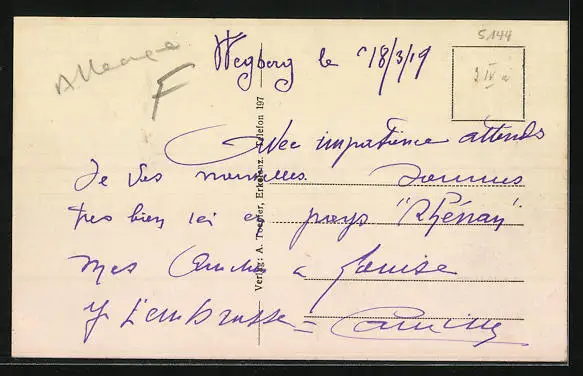 5144
Allemagne
F
Wegberg le 18/3/19
Avec impatience attends
Je des nouvelles. Sommes
très bien ici en pays "Rhénan"
mes à Louise
Je t'embrasse =
Camille
Verlag: A. Toepfer, Erkelenz. Telefon 197